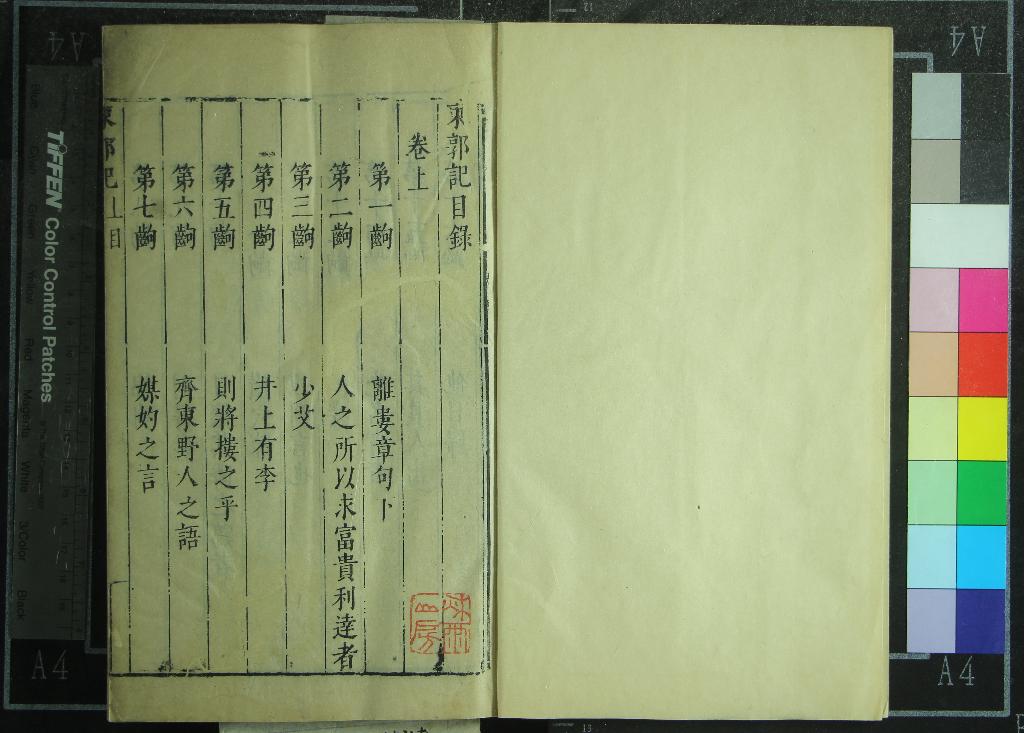 東郭記目錄
卷上
第一齣 離婁章句下
第二齣 人之所以求富貴利達者
第三齣 少艾
第四齣 井上有李
第五齣 則將摟之乎
第六齣 齊東野人之語
第七齣 媒妁之言
東郭記 上目
TIFFEN Color Control Patches
A4
A4
A4
A4